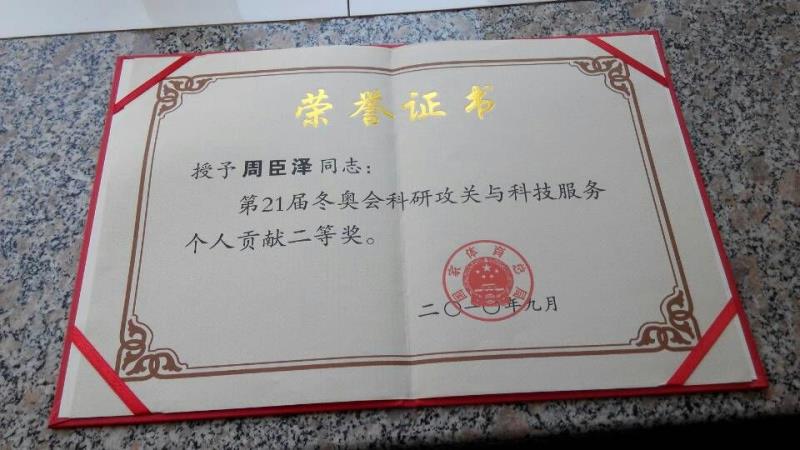 荣誉证书
授予周臣泽同志：
第21届冬奥会科研攻关与科技服务
个人贡献二等奖。
国家体育总局
二〇一〇年九月